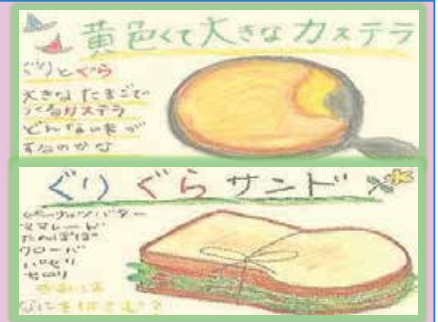 黄色くて大きなカステラ
ぐりとぐら
大きなたまごで
つくるカステラ
どんな味が
するのかな
ぐりぐらサンド
ピーナッツバター
ママレード
たんぽぽ
クローバ
パセリ
セロリ